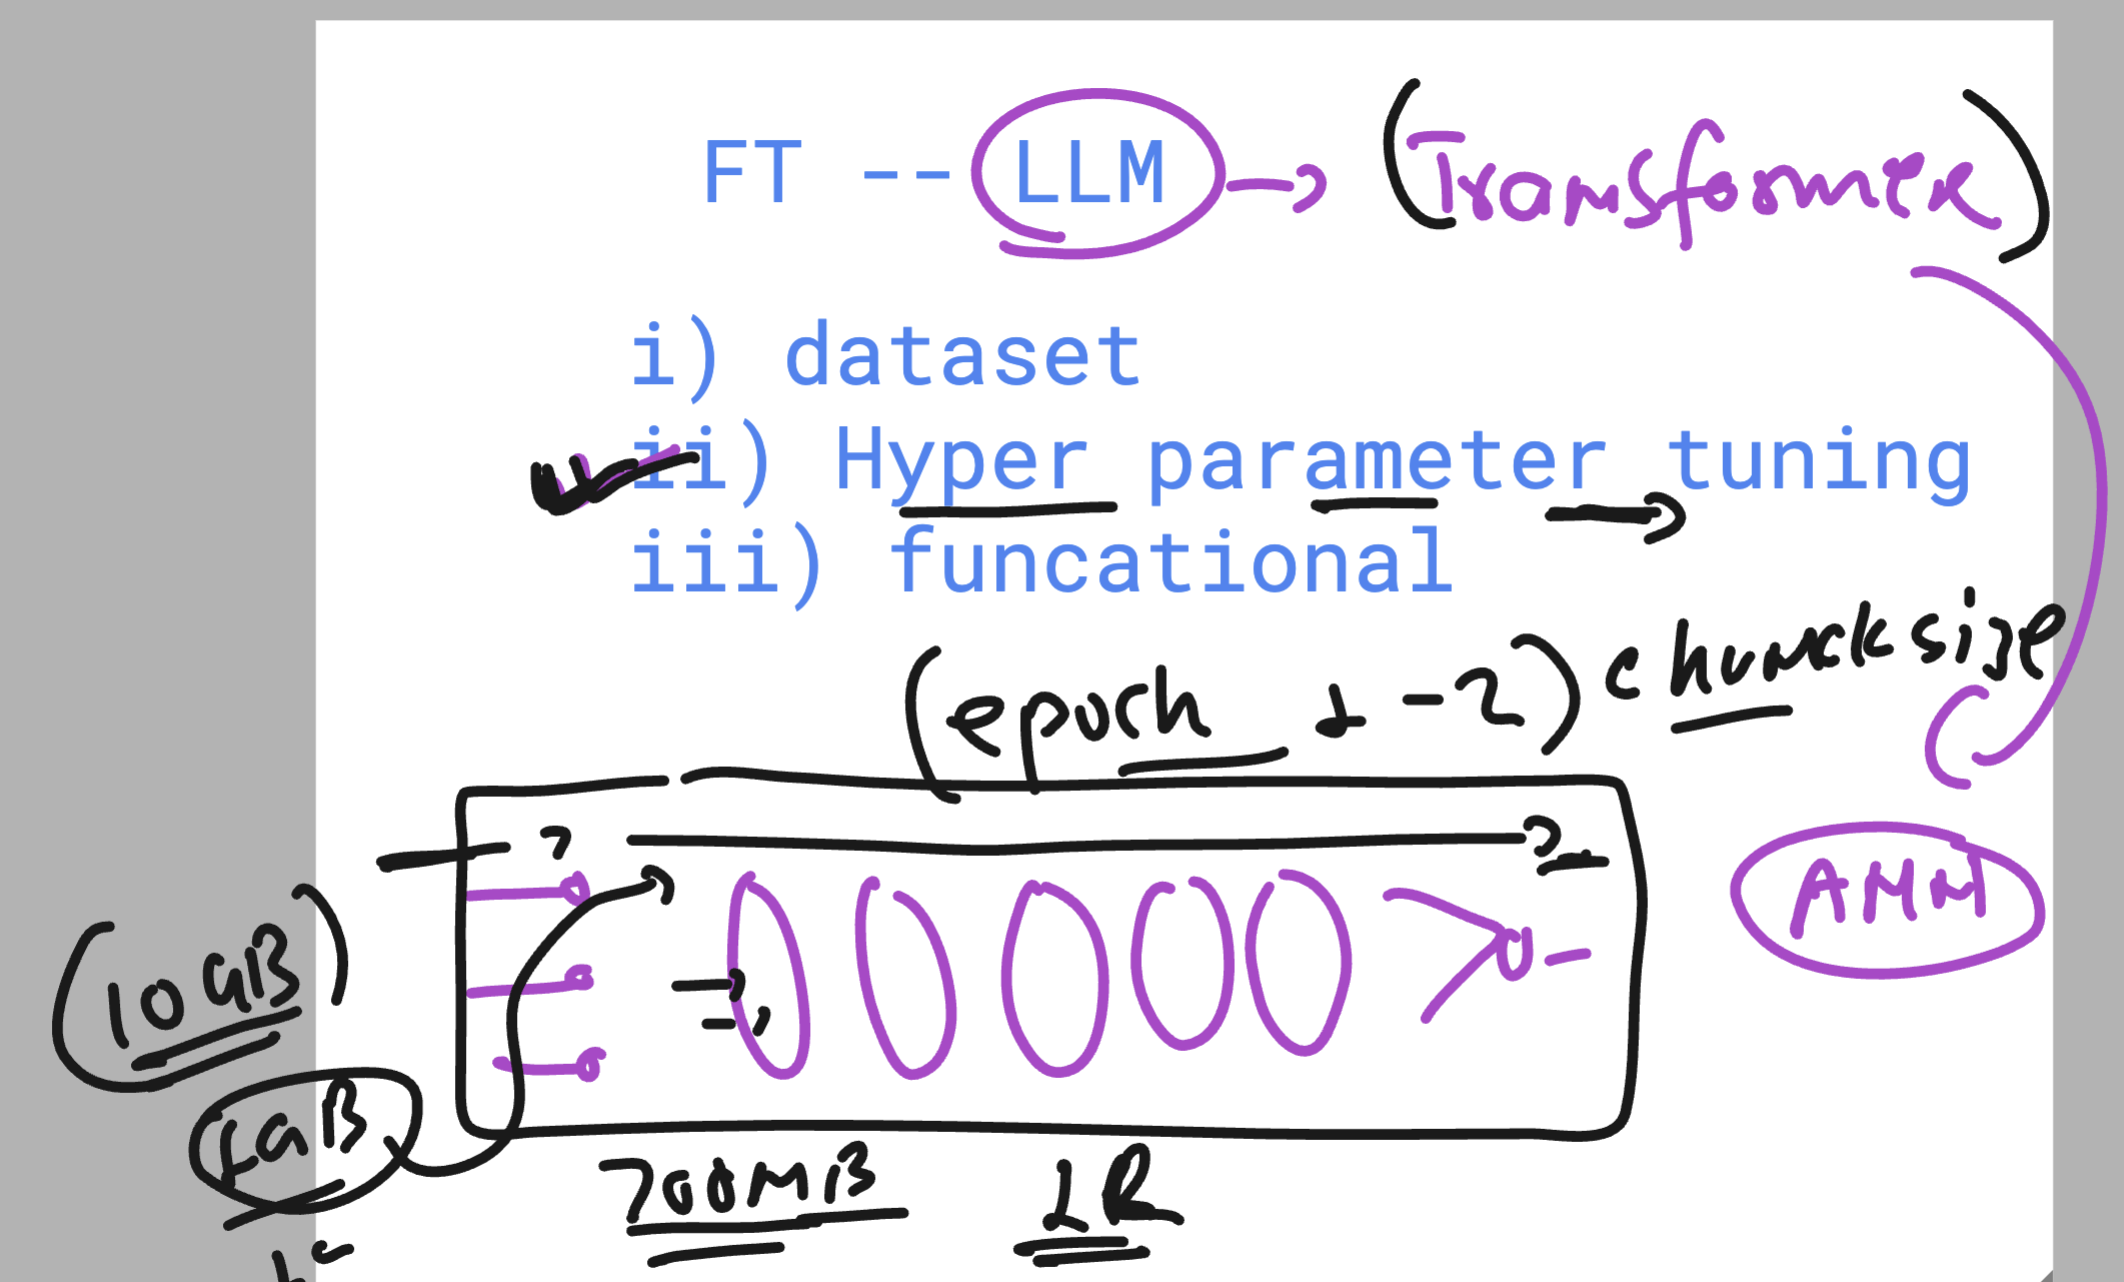 FT -- LLM → (Transformer)
i) dataset
ii) Hyper parameter tuning
iii) funcational
(epoch 1 - 2) chunck size
ANN
(10GB)
1GB
700MB LR